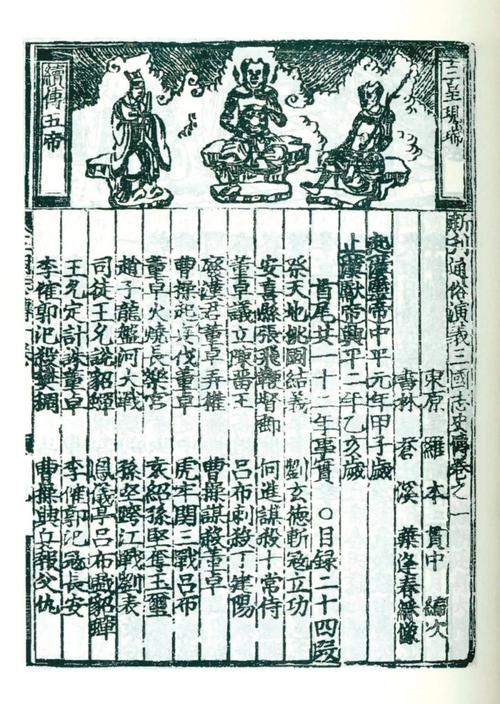 續傳五帝
新刊通俗演義三國志史傳卷之一
東原 羅 本 貫中 編次
書林 蒼 溪 葉逢春綵像
起漢靈帝中平元年甲子歲
止漢獻帝興平二年乙亥歲
首尾共一十二年事實 〇目錄二十四段
祭天地桃園結義 劉玄德斬寇立功
安喜縣張飛鞭督郵 何進謀殺十常侍
董卓議立陳留王 呂布刺殺丁建陽
廢漢君董卓弄權 曹操謀殺董卓
曹操起兵伐董卓 虎牢関三戰呂布
董卓火燒長樂宮 袁紹孫堅奪玉璽
趙子龍盤河大戰 孫堅跨江戰劉表
司徒王允說貂蟬 鳳儀亭呂布戲貂蟬
王允定計誅董卓 李傕郭汜寇長安
李傕郭汜殺樊稠 曹操興兵報父仇